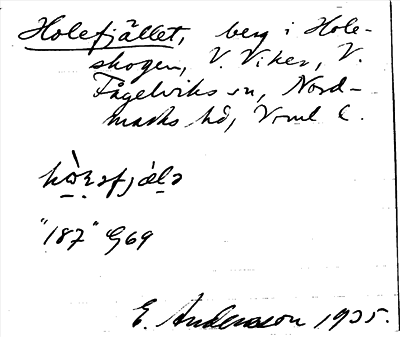 Holefjället, berg i Hole-
skogen, V. Viker, V.
Fågelviks sn, Nord-
marks hd, Vrml l.
"187" G69
E. Andersson 1935.